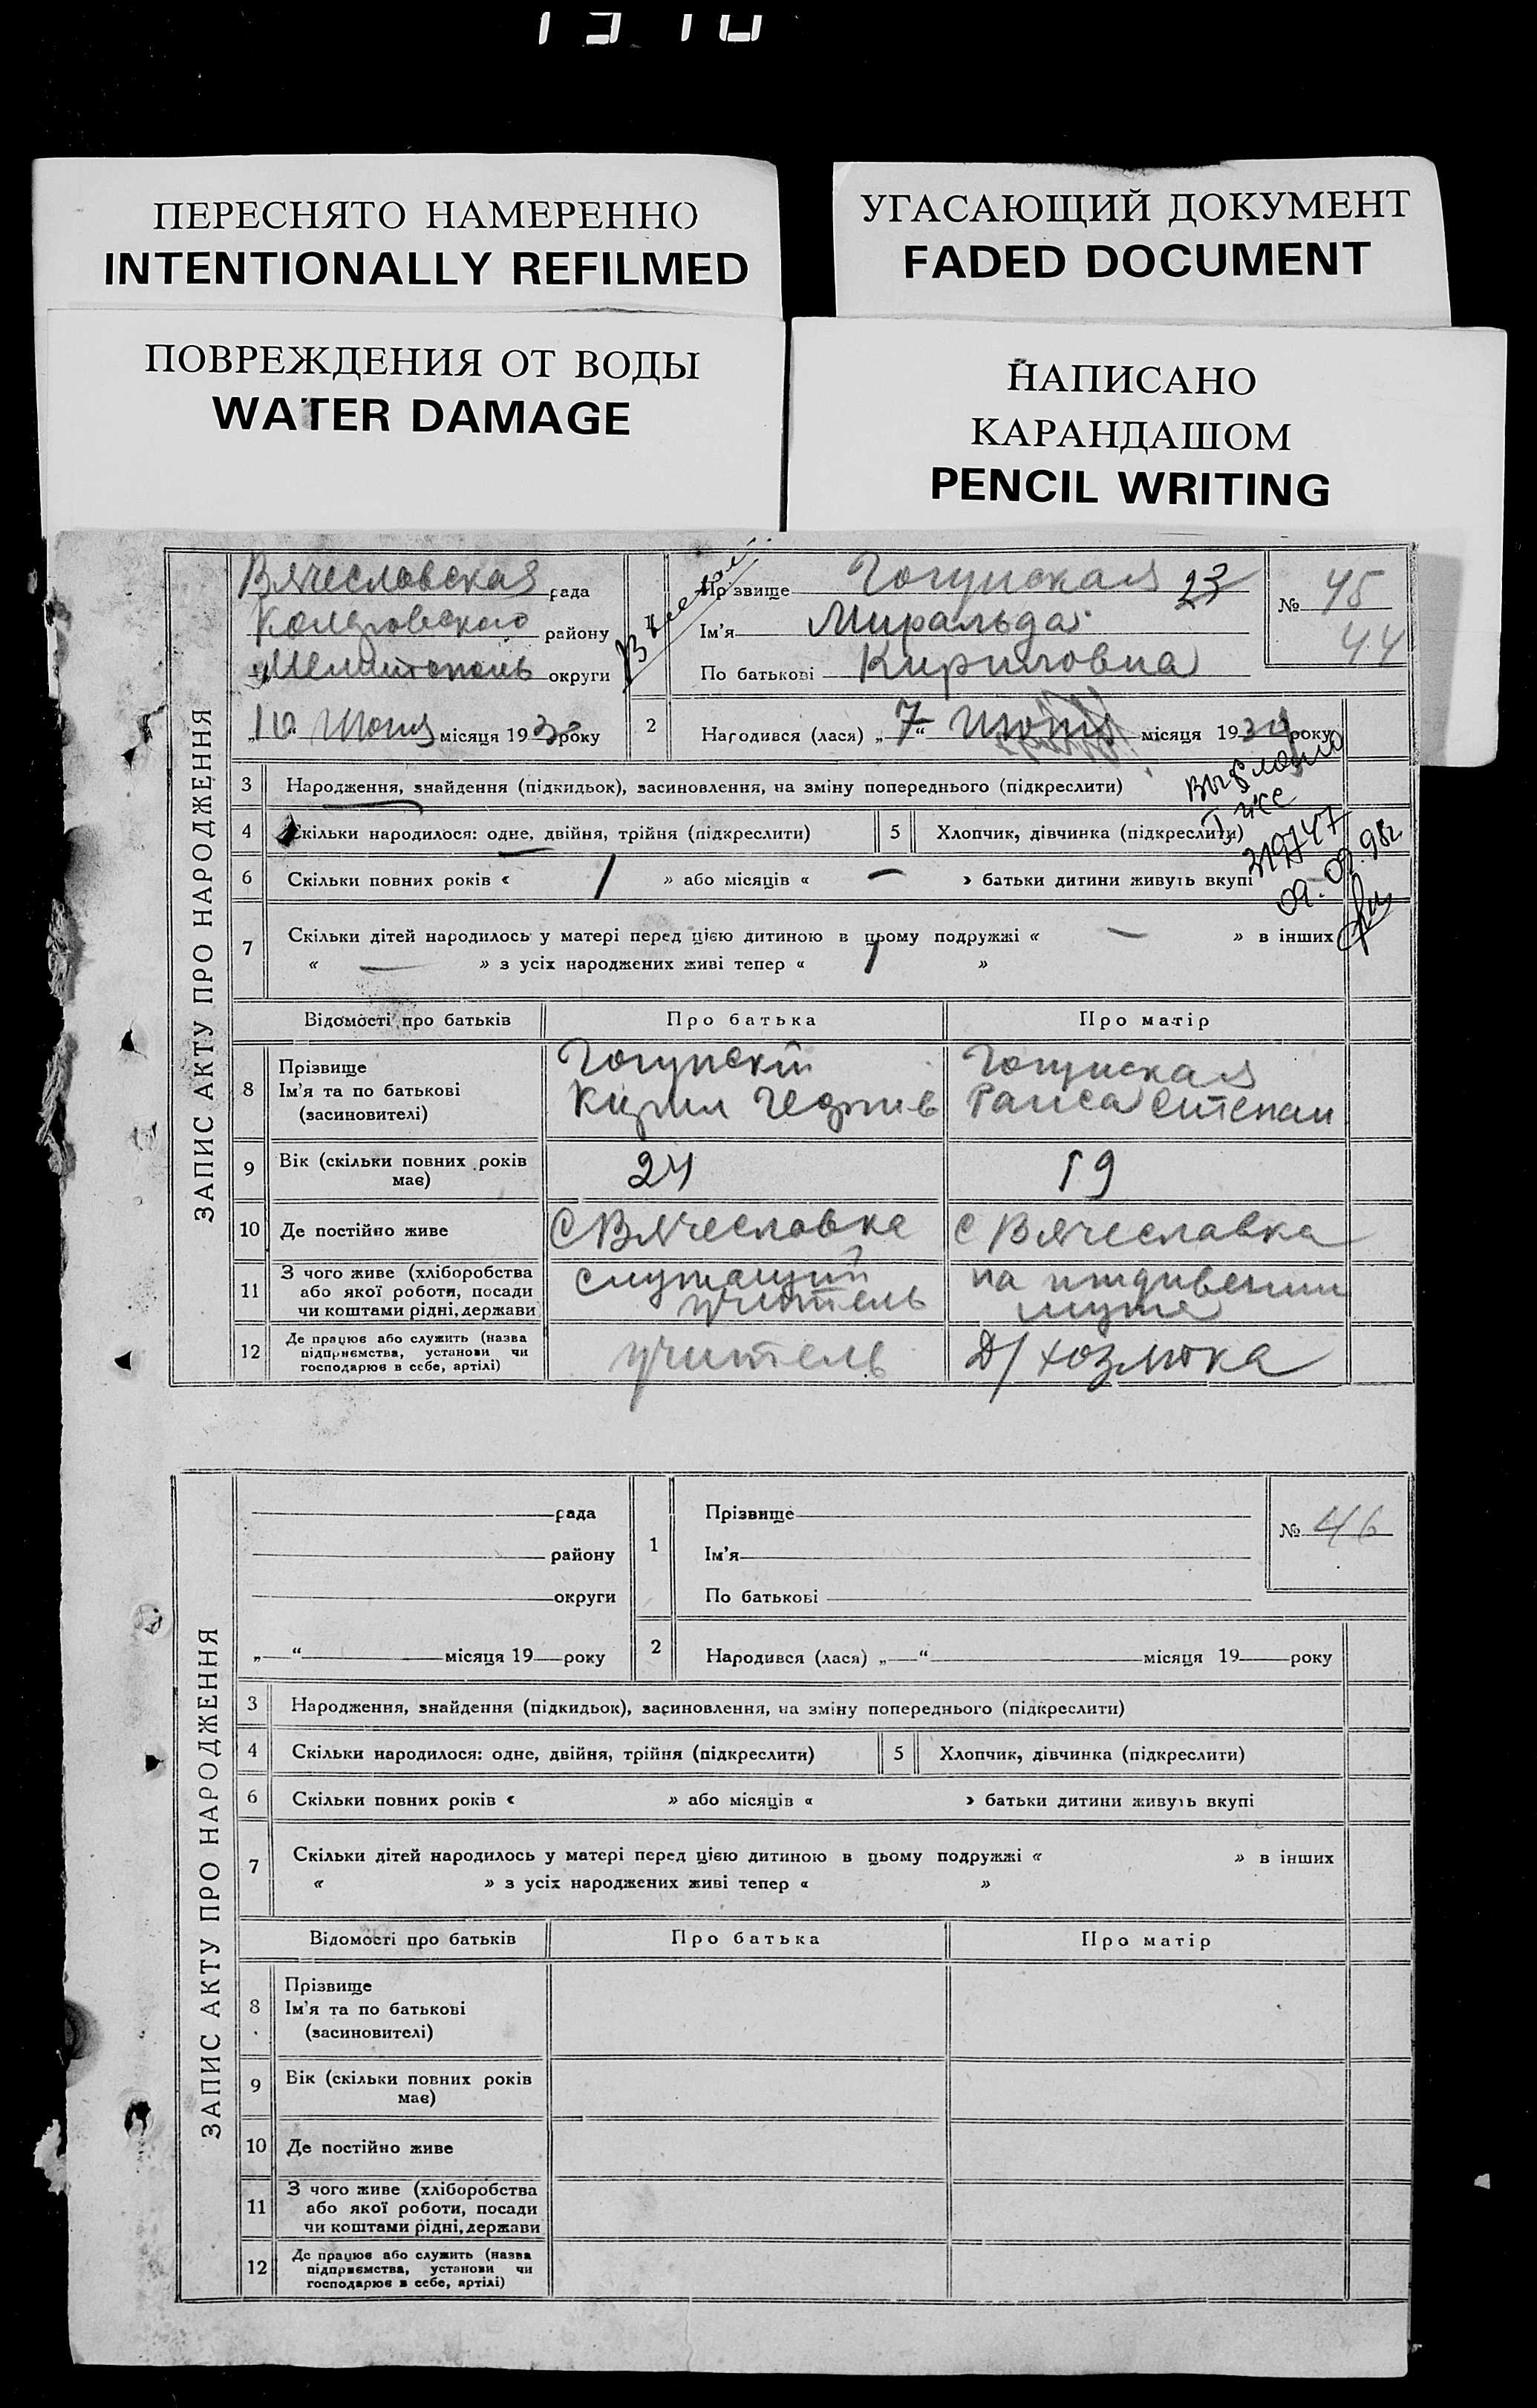 ПЕРЕСНЯТО НАМЕРЕННО
INTENTIONALLY REFILMED
УГАСАЮЩИЙ ДОКУМЕНТ
FADED DOCUMENT
ПОВРЕЖДЕНИЯ ОТ ВОДЫ
WATER DAMAGE
НАПИСАНО
КАРАНДАШОМ
PENCIL WRITING
ЗАПИС АКТУ ПРО НАРОДЖЕННЯ
Вячеславская рада
району
округи
„10“ Июня місяця 1930 року
1
Прізвище 23
Ім’я Миральда
По батькові Кириловна
№ 45
44
2 Народився (лася) „7“ июня місяця 1930 року
3 Народження, знайдення (підкидьок), засиновлення, на зміну попереднього (підкреслити)
4 Скільки народилося: одне, двійня, трійня (підкреслити)
5 Хлопчик, дівчинка (підкреслити)
09.09.98г
6 Скільки повних років « 1 » або місяців « — » батьки дитини живуть вкупі
7 Скільки дітей народилось у матері перед цією дитиною в цьому подружжі « — » в інших
« — » з усіх народжених живі тепер « 1 »
Відомості про батьків
Про батька
Про матір
8 Прізвище
Ім’я та по батькові
(засиновителі)
Кирил
Раиса Степан
9 Вік (скільки повних років
має)
24
19
10 Де постійно живе
С Вячеславка
с Вячеславка
11 З чого живе (хліборобства
або якої роботи, посади
чи коштами рідні, держави
служащий
учитель
на иждивении
мужа
12 Де працює або служить (назва
підприємства, установи чи
господарює в себе, артілі)
учитель
д/хозяйка
ЗАПИС АКТУ ПРО НАРОДЖЕННЯ
рада
району
округи
„ “ місяця 19 року
1
Прізвище
Ім’я
По батькові
№ 46
2 Народився (лася) „ “ місяця 19 року
3 Народження, знайдення (підкидьок), засиновлення, на зміну попереднього (підкреслити)
4 Скільки народилося: одне, двійня, трійня (підкреслити)
5 Хлопчик, дівчинка (підкреслити)
6 Скільки повних років « » або місяців « » батьки дитини живуть вкупі
7 Скільки дітей народилось у матері перед цією дитиною в цьому подружжі « » в інших
« » з усіх народжених живі тепер « »
Відомості про батьків
Про батька
Про матір
8 Прізвище
Ім’я та по батькові
(засиновителі)
9 Вік (скільки повних років
має)
10 Де постійно живе
11 З чого живе (хліборобства
або якої роботи, посади
чи коштами рідні, держави
12 Де працює або служить (назва
підприємства, установи чи
господарює в себе, артілі)